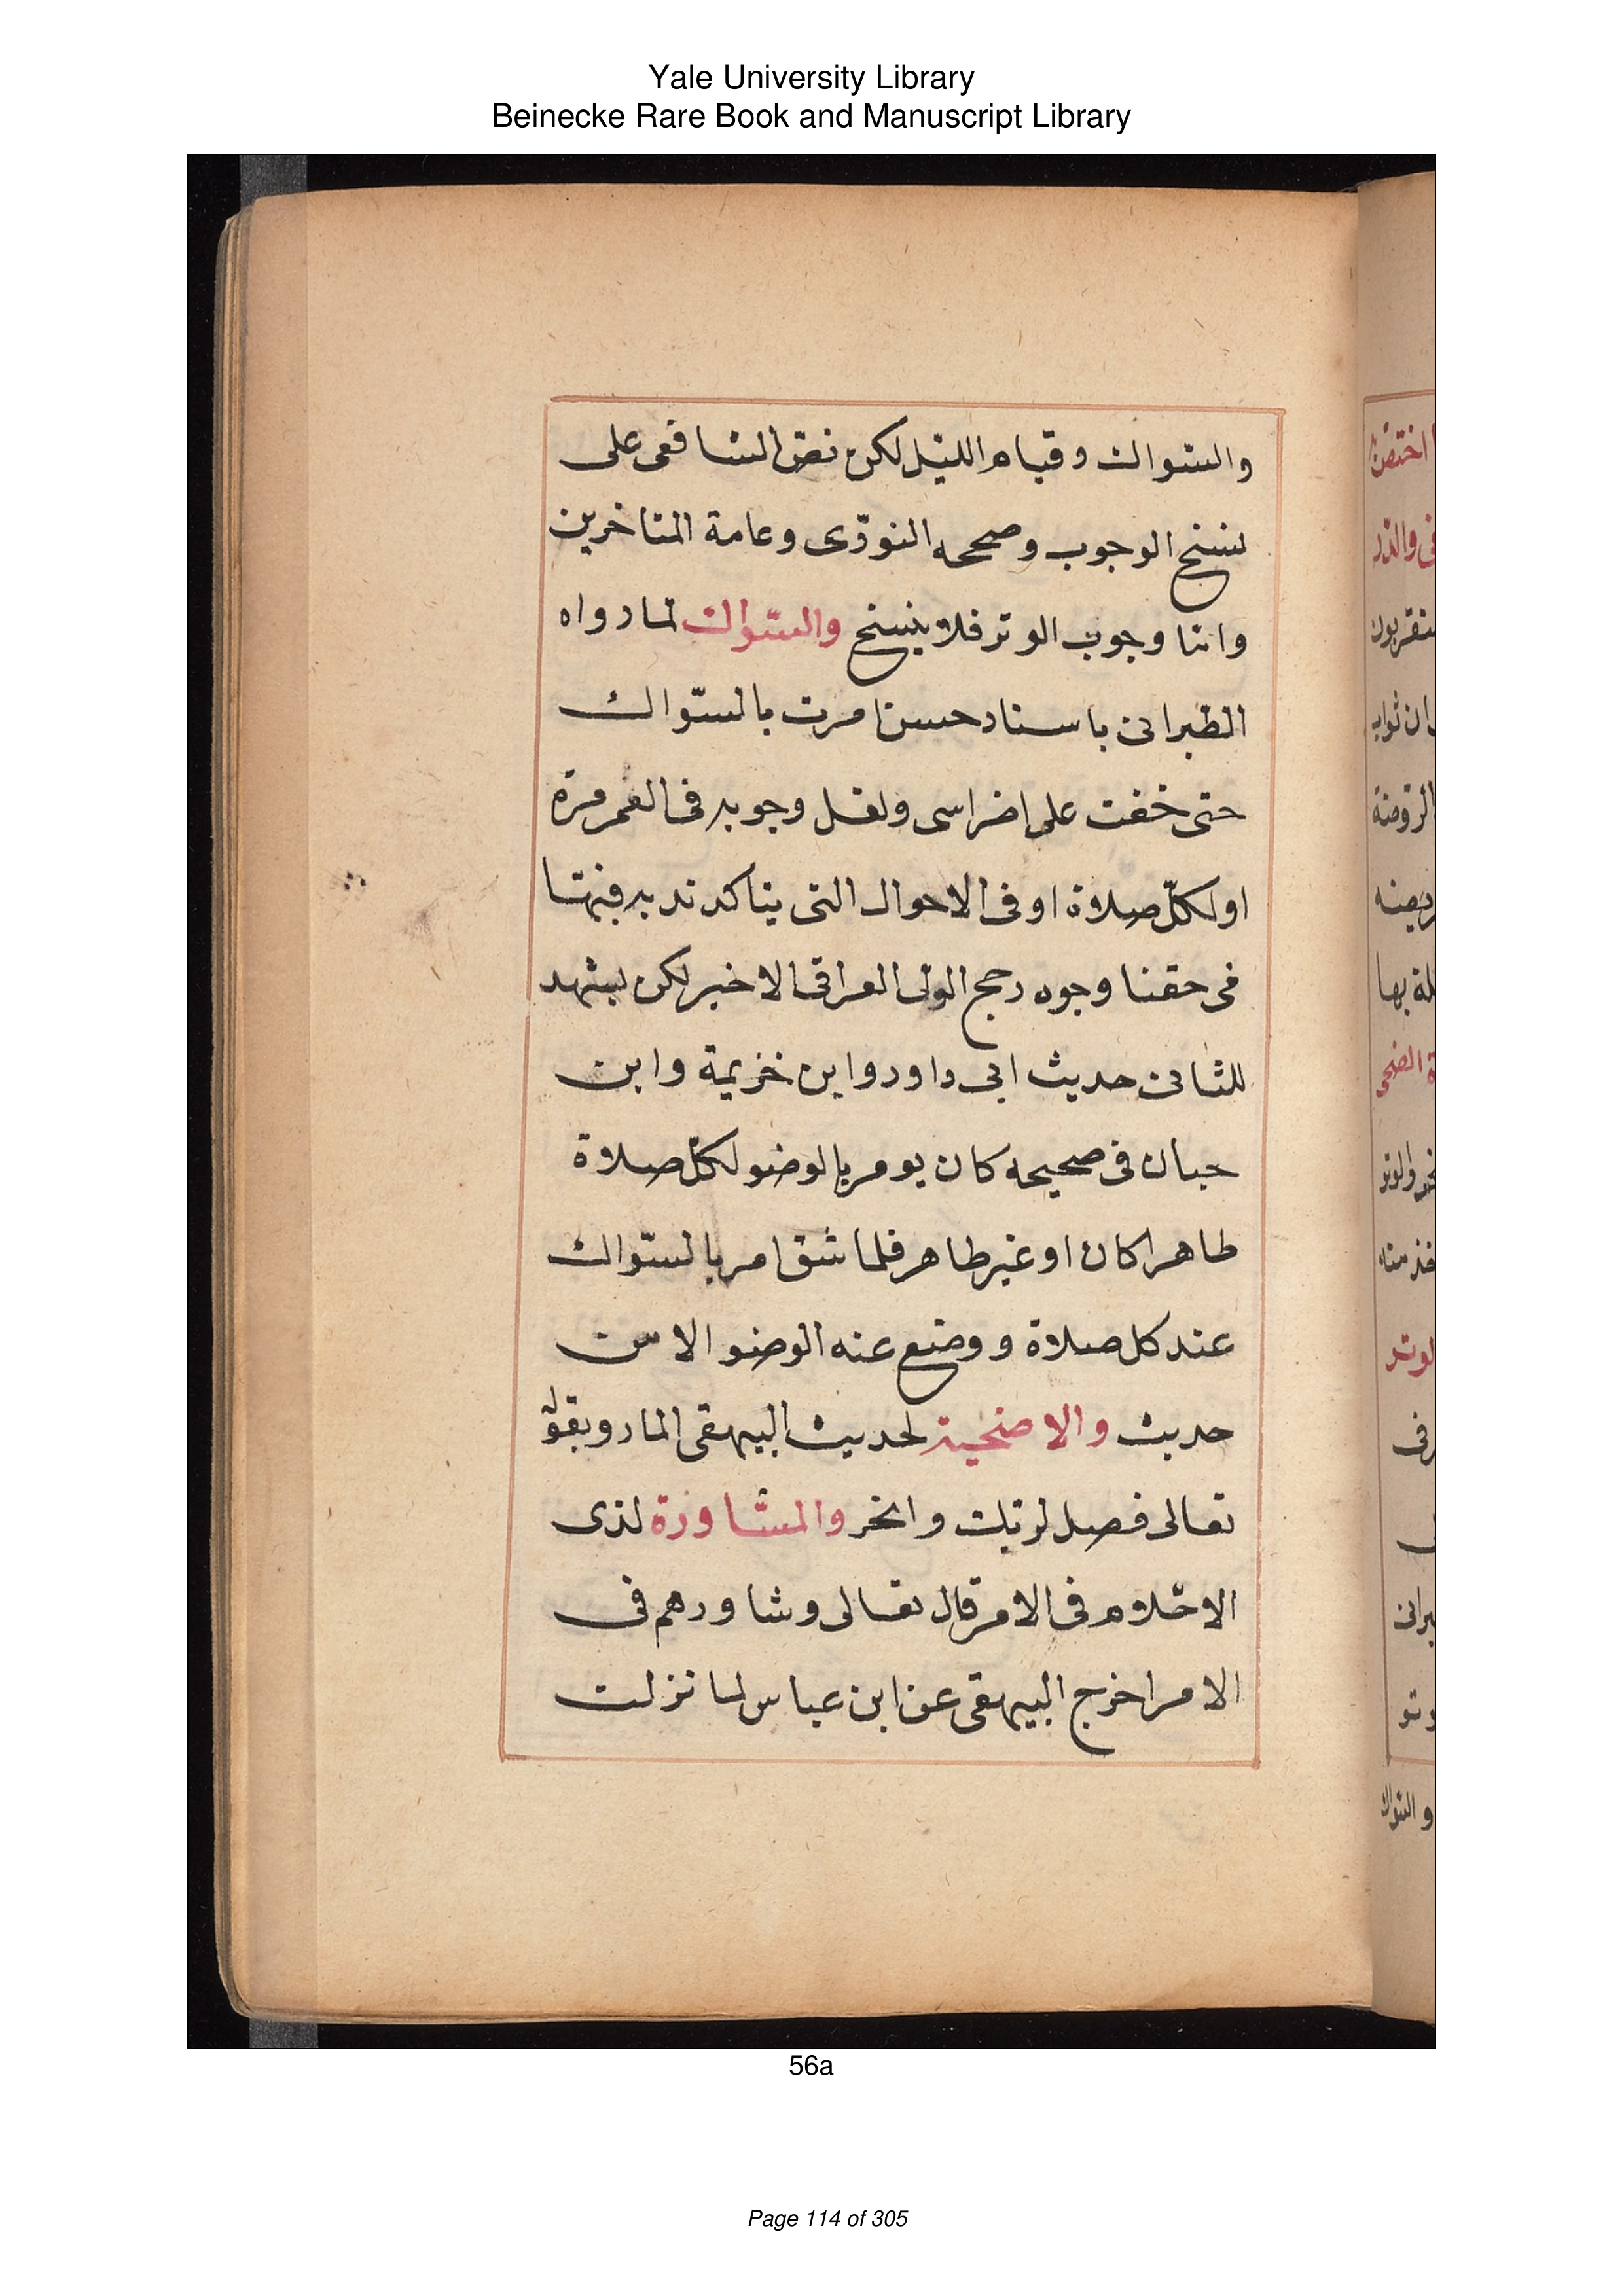 Yale University Library
Beinecke Rare Book and Manuscript Library
والسّواك وقيام الليل لكن نصّ الشافعى على
نسخ الوجوب وصححه النووّى وعامة المتاخرين
وامّا وجوب الوتر فلا ينسخ والسّواك لما رواه
الطبرانى باسناد حسن امرت بالسّواك
حتى خفت على اضراسى ولعل وجوبه فى العمر مرة
او لكلّ صلاة او فى الاحوال التى يتاكد ندبه فيها
فى حقنا وجوه رجح الولى العراقى الاخير لكن يشهد
للثانى حديث ابى داود وابن خزيمة وابن
حبان فى صحيحه كان يومر بالوضو لكلّ صلاة
طاهرا كان او غير طاهر فلما شق امر بالسّواك
عند كل صلاة ووضع عنه الوضو الا من
حديث والاضحية لحديث البيهقى المار وبقوله
تعالى فصل لربك وانحر والمشاورة لذى
الاحلام فى الامر قال تعالى وشاورهم فى
الامر اخرج البيهقى عن ابن عباس لما نزلت
56a
Page 114 of 305